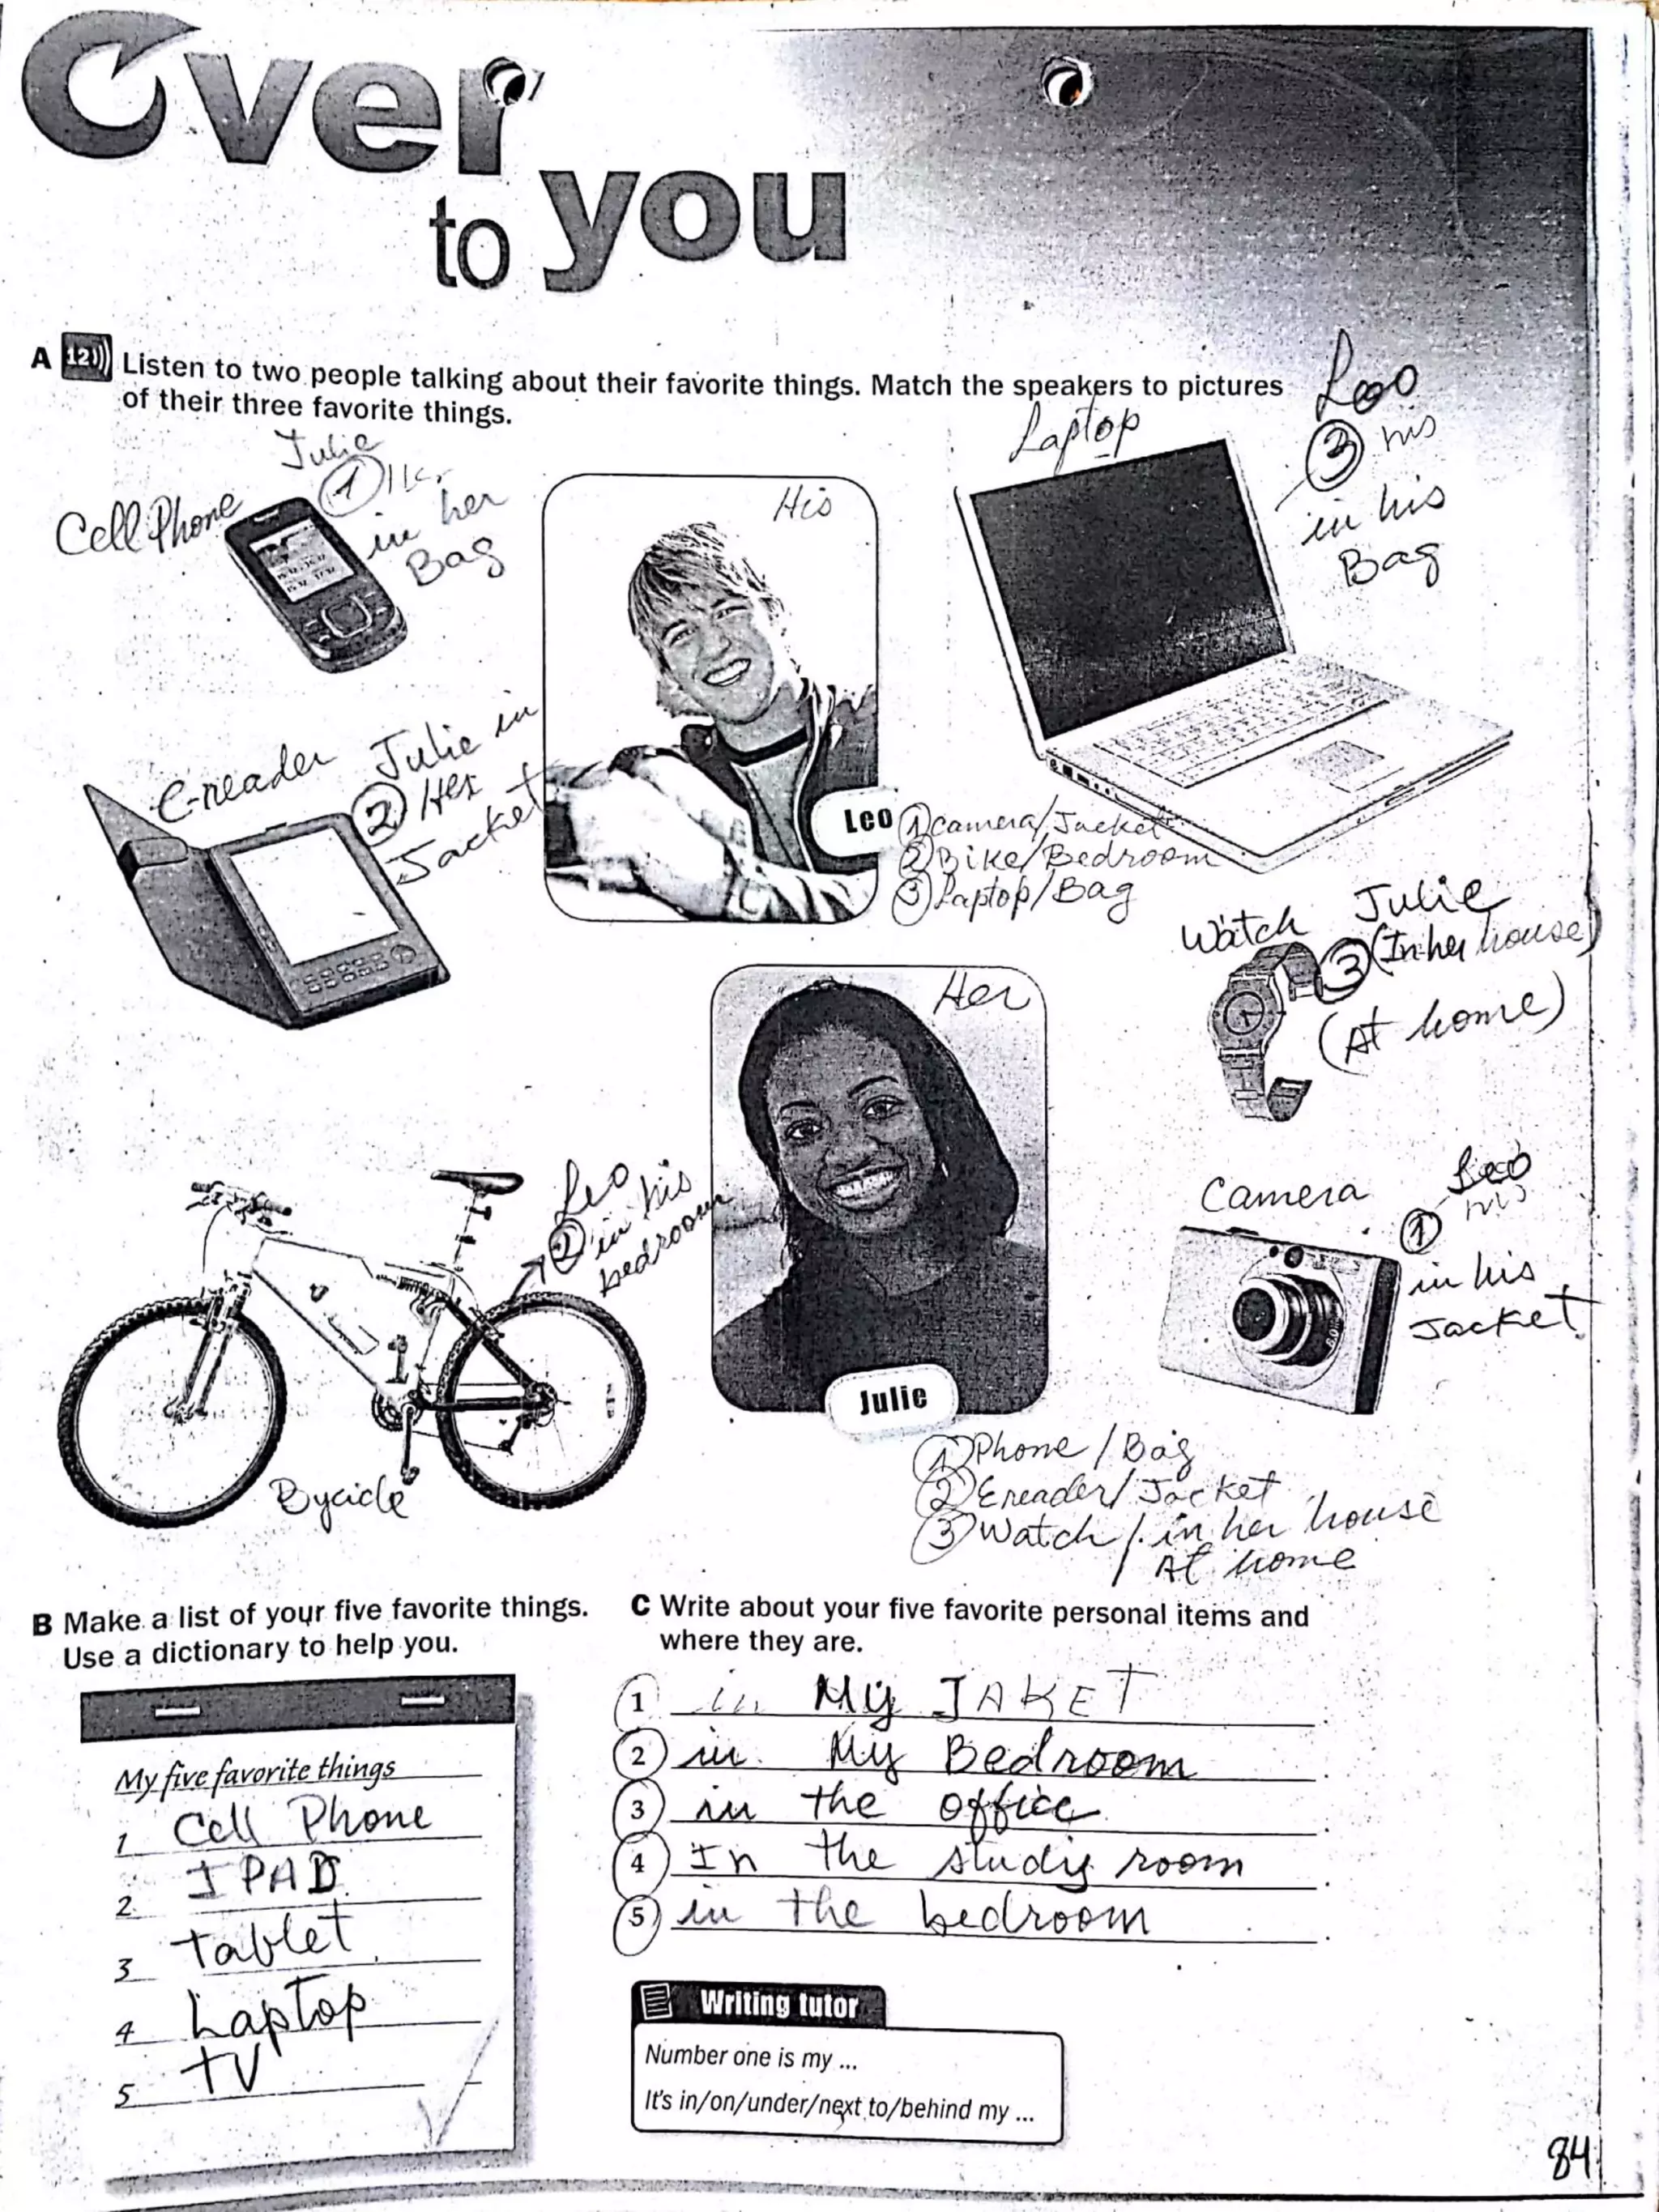 Over
to you
A 12 Listen to two people talking about their favorite things. Match the speakers to pictures
of their three favorite things.
Leo
3 his
in his
Bag
Laptop
Julie
1 Her
in her
Bag
Cell Phone
His
E-reader
Julie in
2 Her
Jacket
Leo
1 Camera/Jacket
2 Bike/Bedroom
3 Laptop/Bag
Watch
Julie
3 (In her house)
(At home)
Her
Leo
2 in his
bedroom
Camera
Leo
1 his
in his
Jacket
Julie
Bycicle
1 Phone / Bag
2 Ereader / Jacket
3 Watch / in her house
At home
B Make a list of your five favorite things.
Use a dictionary to help you.
My five favorite things
1 Cell Phone
2. IPAD
3 Tablet
4 Laptop
5 TV
C Write about your five favorite personal items and
where they are.
1 in My JAKET.
2 in My Bedroom.
3 in the office.
4 In the study room.
5 in the bedroom.
Writing tutor
Number one is my ...
It's in/on/under/next to/behind my ...
84